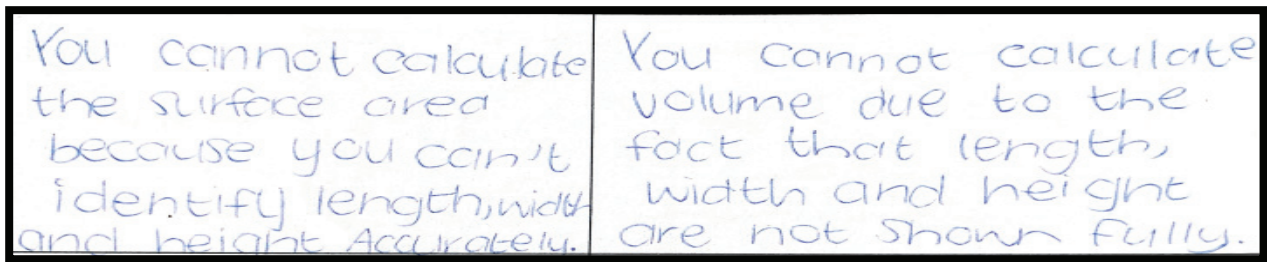 You cannot calculate
the surface area
because you can't
identify length, width
and height Accurately.
You cannot calculate
volume due to the
fact that length,
width and height
are not shown fully.